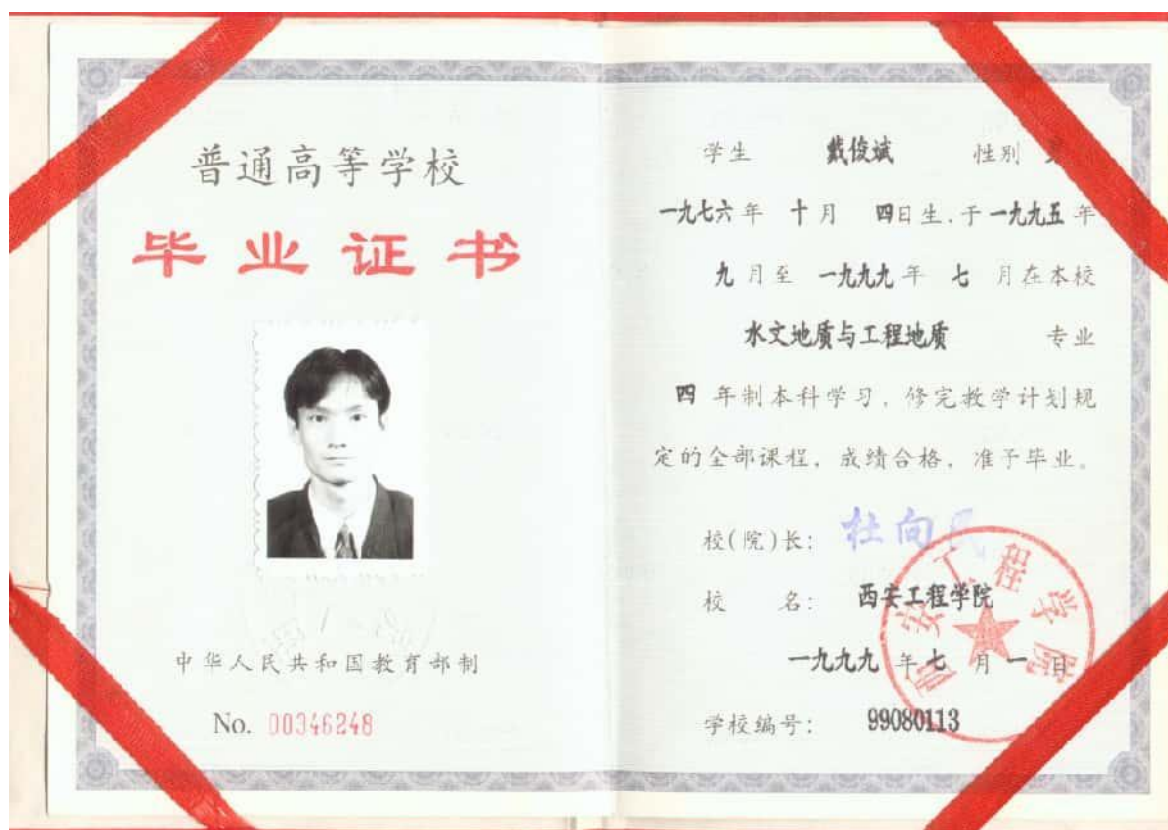 普通高等学校
毕业证书
中华人民共和国教育部制
No. 00346248
学生 戴俊斌 性别
一九七六年 十月 四日生,于一九九五年
九月至 一九九九年 七 月在本校
水文地质与工程地质 专业
四 年制本科学习,修完教学计划规
定的全部课程,成绩合格,准予毕业。
校(院)长: 杜向
校 名: 西安工程学院
一九九九年七月一日
学校编号: 99080113
西安工程学院